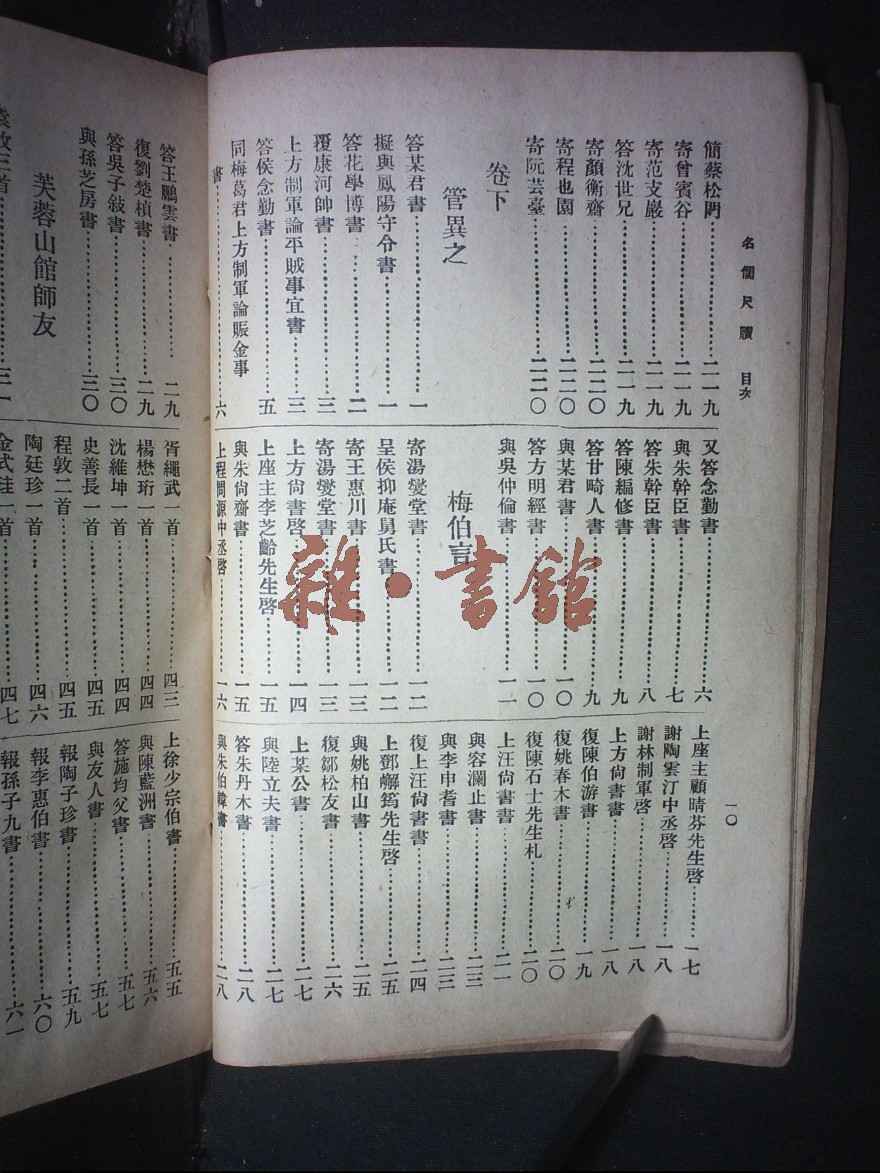 名儒尺牘 目次
一〇
簡蔡松閌…………二一九
寄曾賓谷…………二一九
寄范支巖…………二一九
答沈世兄…………二一九
寄顏衡齋…………二二〇
寄程也園…………二二〇
寄阮芸臺…………二二〇
卷下
管異之
答某君書…………一
擬與鳳陽守令書…………一
答花學博書…………二
覆康河帥書…………三
上方制軍論平賊事宜書…………三
答侯念勤書…………五
同梅葛君上方制軍論賑金事
書…………六
又答念勤書…………六
與朱幹臣書…………七
答朱幹臣書…………八
答陳編修書…………九
答甘畸人書…………九
與某君書…………一〇
答方明經書…………一〇
與吳仲倫書…………一一
梅伯言
寄湯燮堂書…………一二
呈侯抑庵舅氏書…………一二
寄王惠川書…………一三
寄湯燮堂書…………一三
上方尙書啓…………一四
上座主李芝齡先生啓…………一五
與朱尙齋書…………一五
上程問源中丞啓…………一六
上座主顧晴芬先生啓…………一七
謝陶雲汀中丞啓…………一八
謝林制軍啓…………一八
上方尙書書…………一八
復陳伯游書…………一九
復姚春木書…………二〇
復陳石士先生札…………二〇
上汪尙書書…………二一
與容瀾止書…………二三
與李申耆書…………二三
復上汪尙書書…………二四
上鄧嶰筠先生啓…………二五
與姚柏山書…………二五
復鄒松友書…………二六
上某公書…………二七
與陸立夫書…………二七
答朱丹木書…………二八
與朱伯韓書…………二八
答王鵬雲書…………二九
復劉楚楨書…………二九
答吳子敍書…………三〇
與孫芝房書…………三〇
芙蓉山館師友
袁枚三首…………三一
胥繩武一首…………四三
楊懋珩一首…………四四
沈維坤一首…………四四
史善長一首…………四五
程敦二首…………四五
陶廷珍一首…………四六
金式珪一首…………四七
上徐少宗伯書…………五五
與陳藍洲書…………五六
答施均父書…………五七
與友人書…………五七
報陶子珍書…………五九
報李惠伯書…………六〇
報孫子九書…………六一
雜·書館